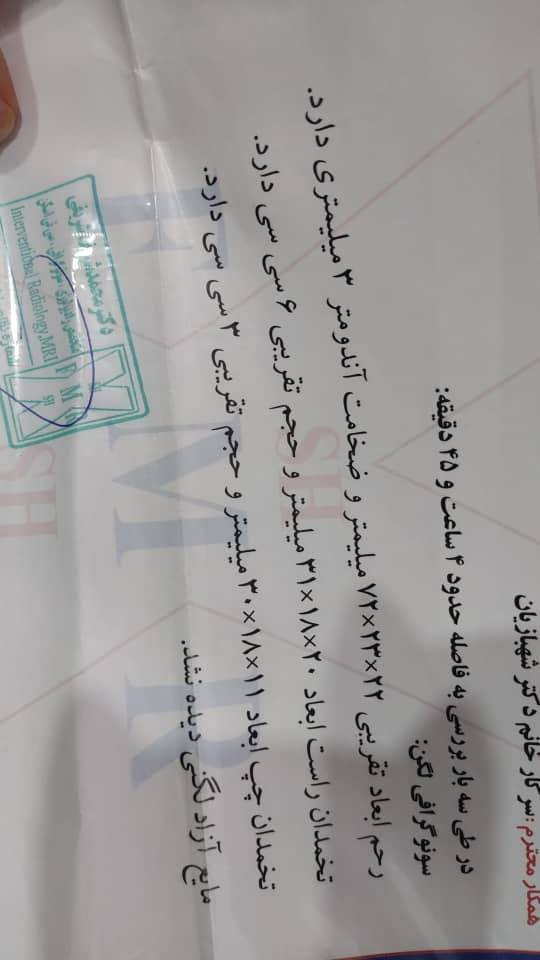 همکار محترم: سرکار خانم دکتر شهبازیان
در طی سه بار بررسی به فاصله حدود ۴ ساعت و ۴۵ دقیقه:
سونوگرافی لگن:
رحم ابعاد تقریبی ۲۲×۲۳×۷۲ میلیمتر و ضخامت آندومتر ۳ میلیمتری دارد.
تخمدان راست ابعاد ۲۰×۱۸×۳۱ میلیمتر و حجم تقریبی ۶ سی سی دارد.
تخمدان چپ ابعاد ۱۱×۱۸×۳۰ میلیمتر و حجم تقریبی ۳ سی سی دارد.
مایع آزاد لگنی دیده نشد.
دکتر محمد
Interventional Radiology, MRI
F M R
SH
SH